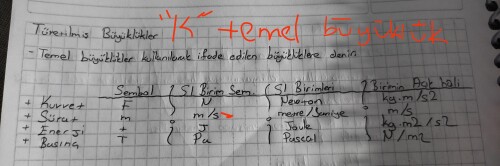 Türerilmiş Büyüklükler "K" temel büyüklük
- Temel büyüklükler kullanılarak ifade edilen büyüklüklere denir.
Sembol SI Birim Sem. SI Birimleri Birimin Açık hâli
+ Kuvvet F N Newton kg.m/s2
+ Sürat m m/s metre/saniye m/s
+ Enerji t J Joule kg.m2/s2
+ Basınç T Pa Pascal N/m2